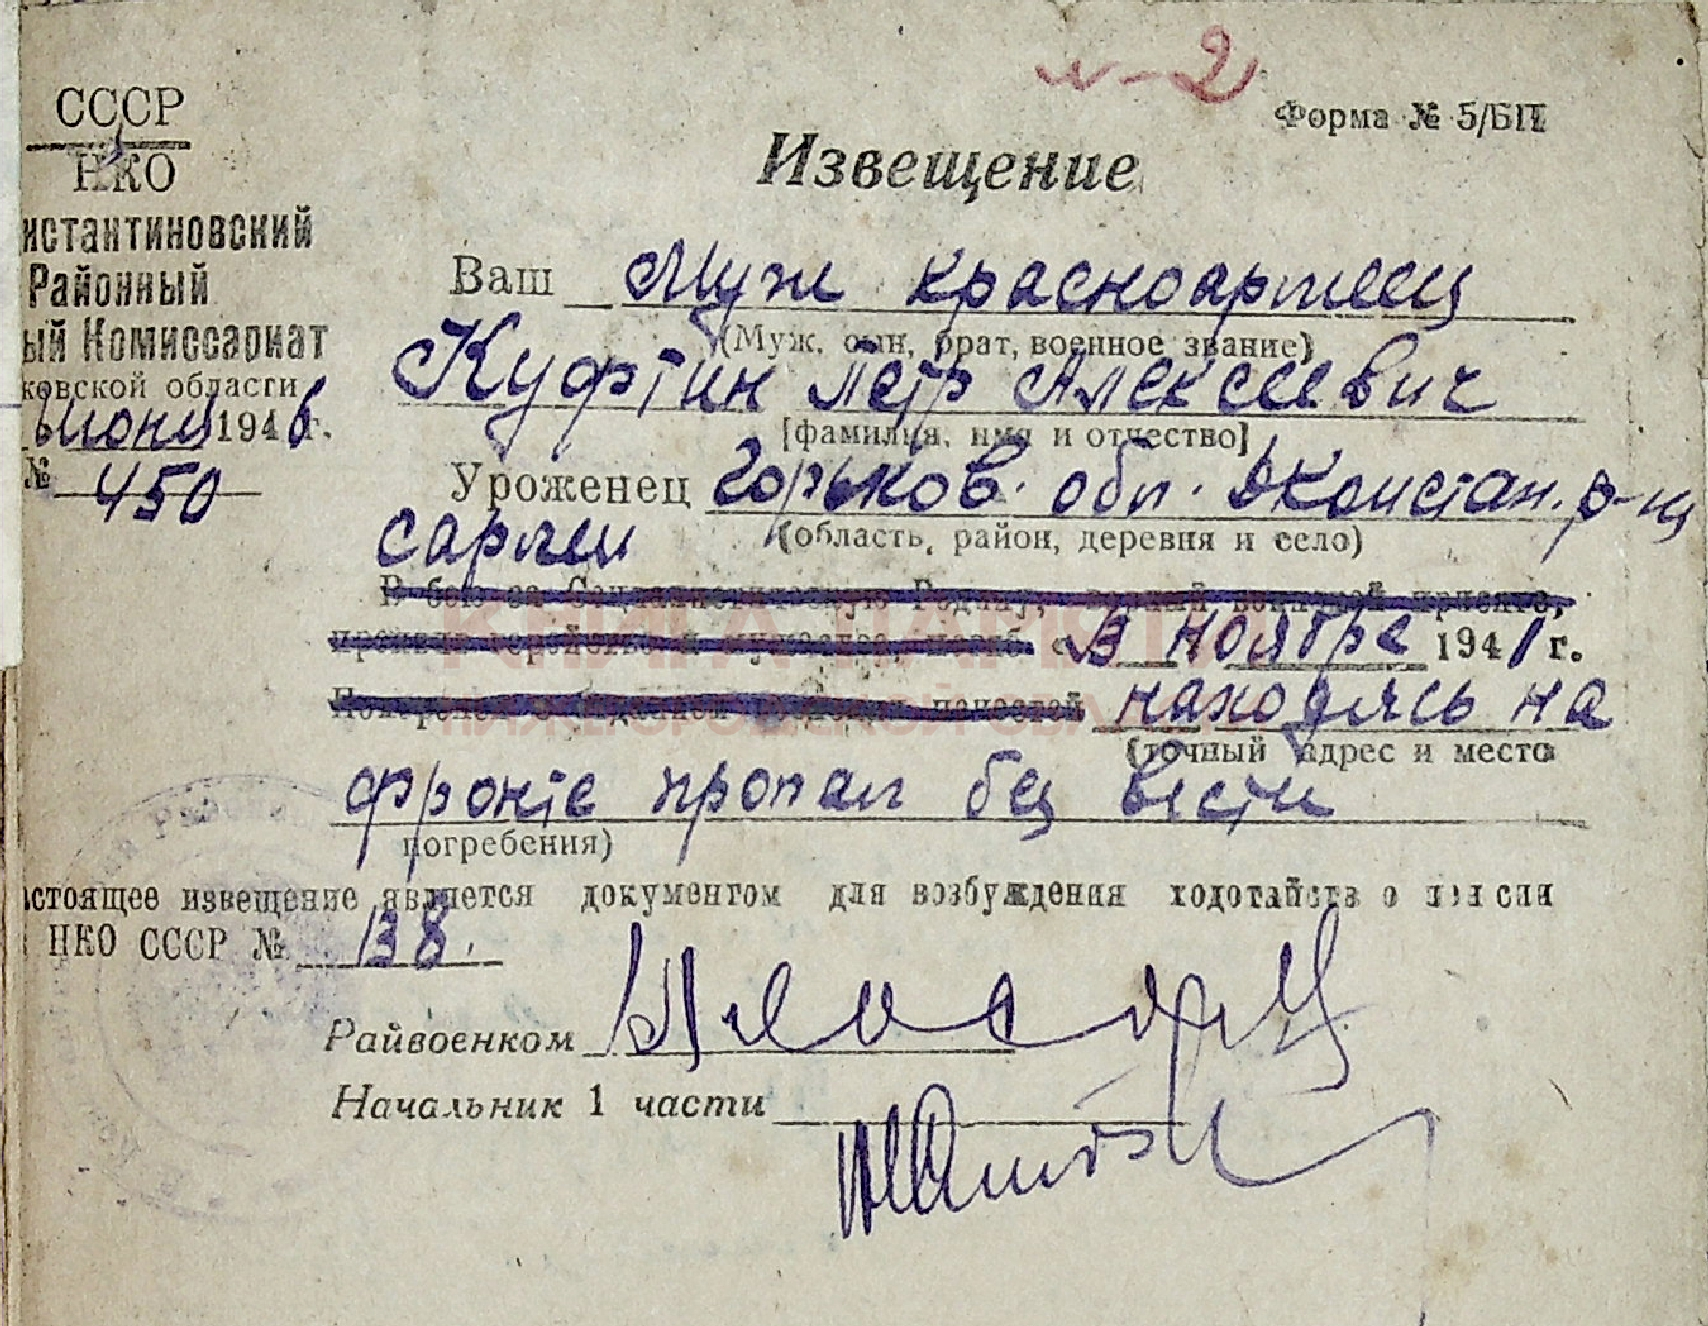 л-2
Форма № 5/БП
СССР
НКО
нстантиновский
Районный
ый Комиссариат
ковской области
6 июня 1946 г.
№ 450
Извещение
Ваш Муж красноармеец
(Муж, сын, брат, военное звание)
Куфтин Петр Алексеевич
[фамилия, имя и отчество]
Уроженец Горьков. обл. Дконстан. р-н
(область, район, деревня и село)
сарлеи
В бою за Социалистическую Родину, верный воинской присяге,
проявив геройство и мужество, погиб « В ноябре 1941 г.
находясь на
(точный адрес и место
фронте пропал без вести
погребения)
астоящее извещение является документом для возбуждения ходотайств о пенсии
НКО СССР № 138.
Райвоенком
Начальник 1 части
КНИГА ПАМЯТИ
НИЖЕГОРОДСКОЙ ОБЛАСТИ